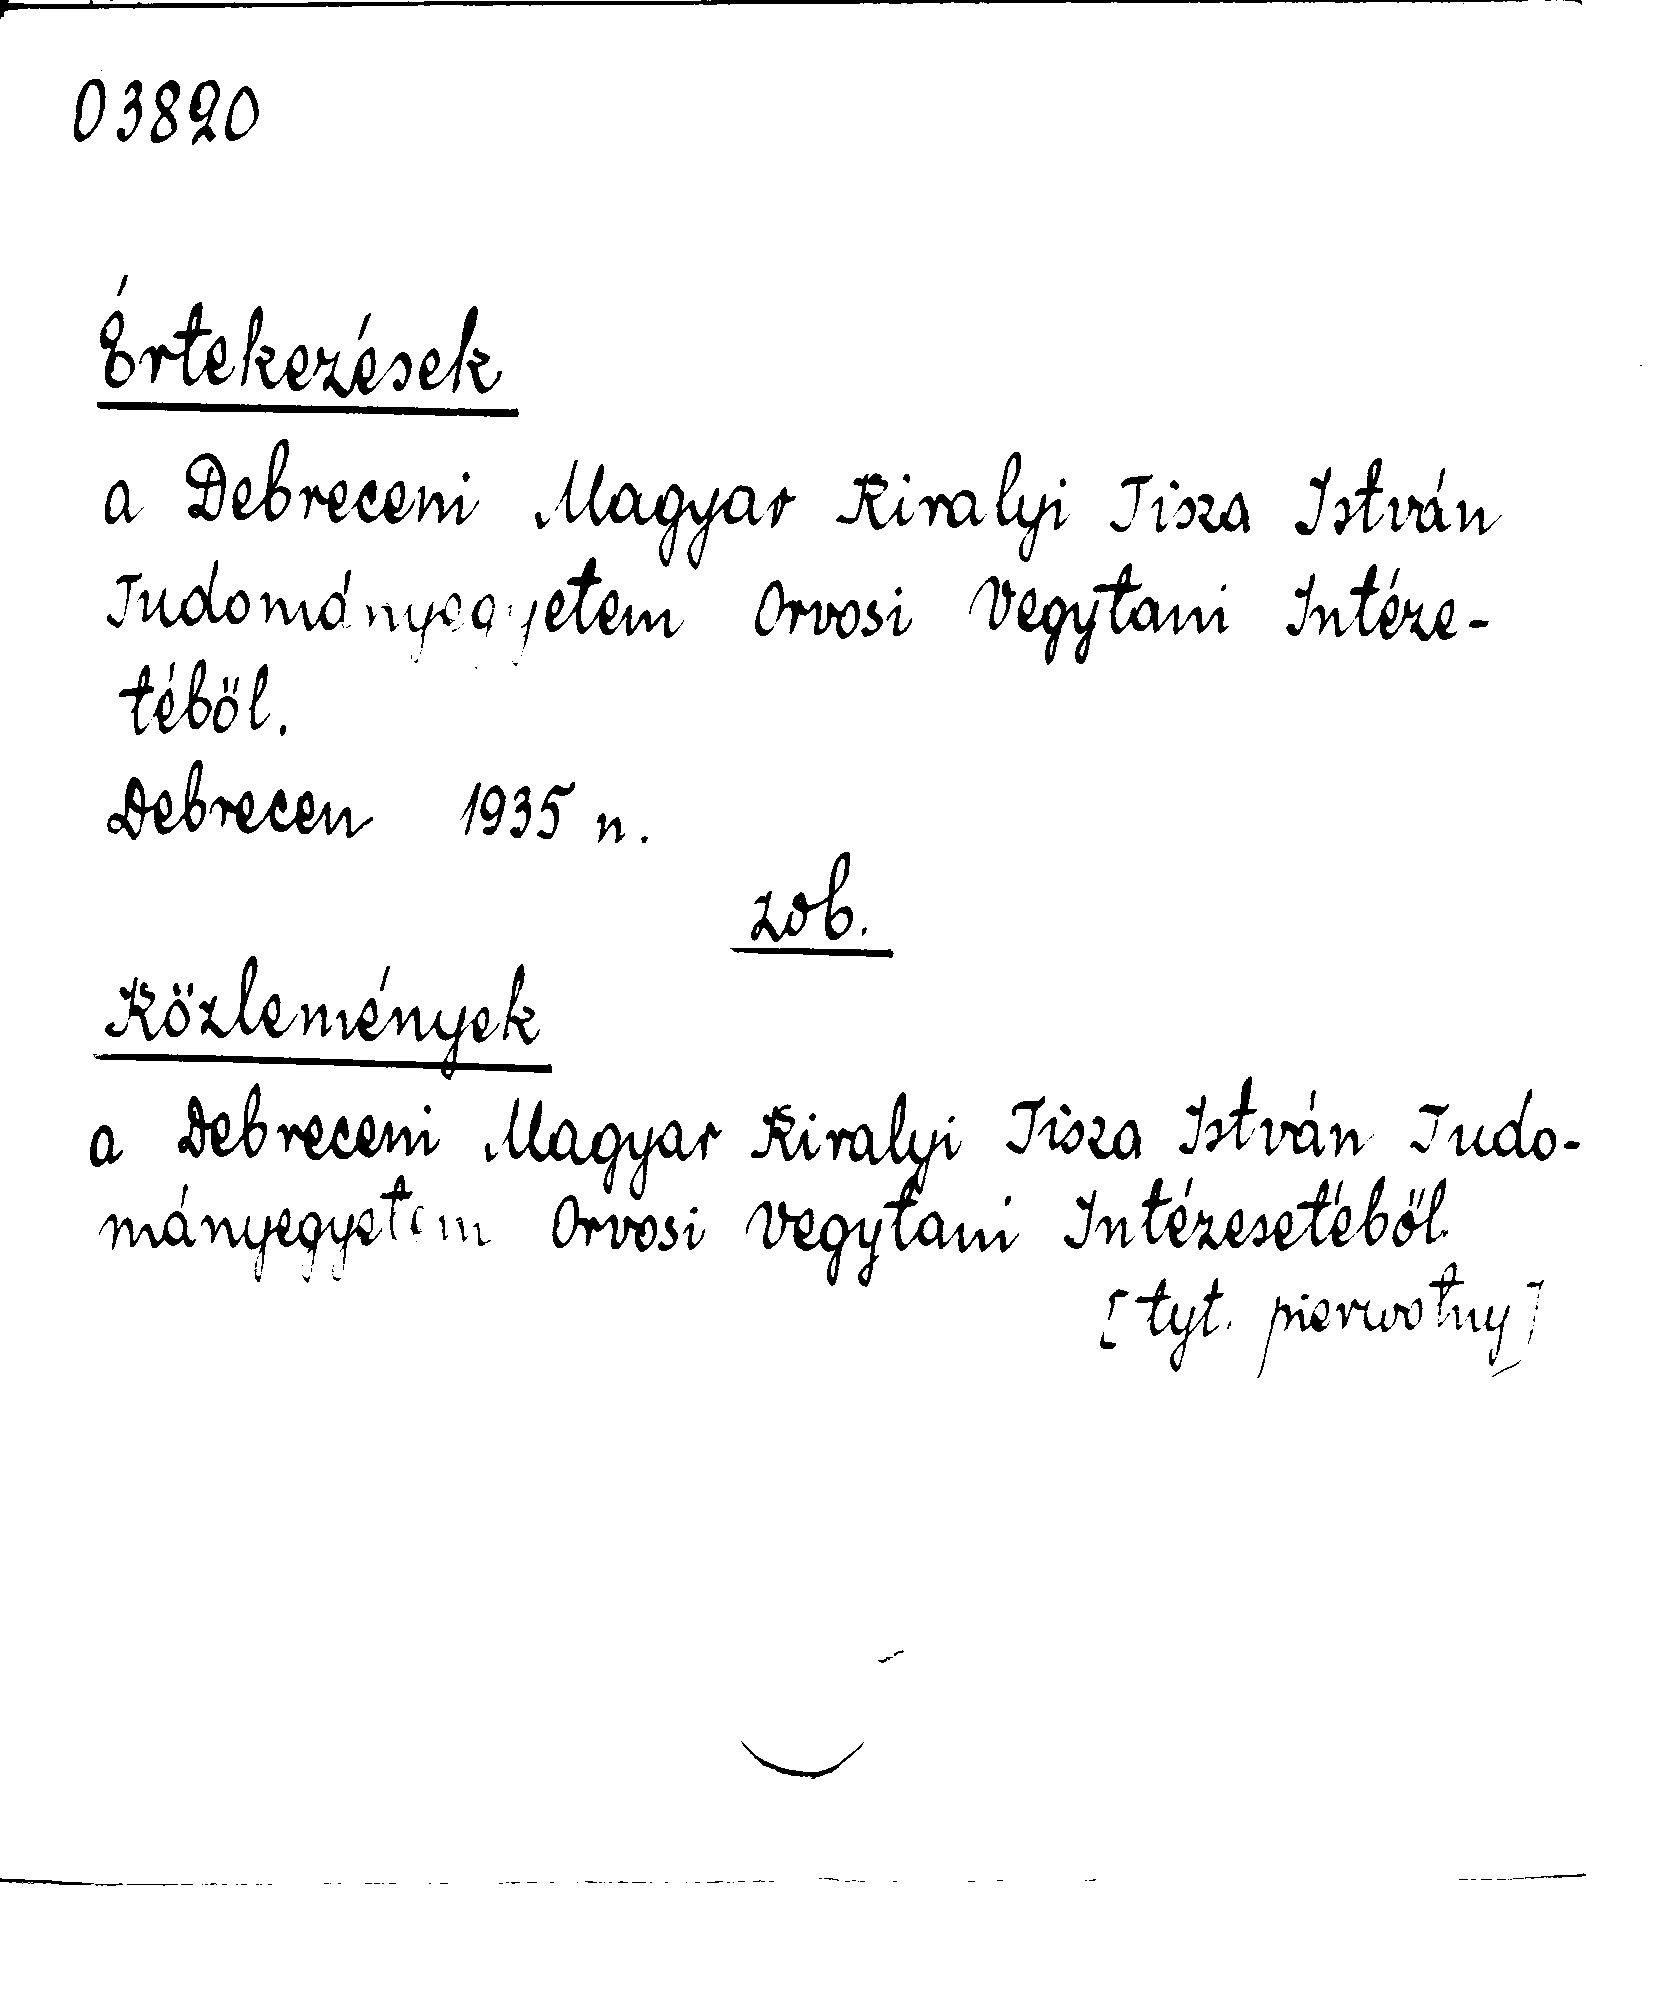 03820
Értekezések
a Debreceni Magyar Kiralyi Tisza István
Tudományegyetem Orvosi Vegytani Intéze-
téböl.
Debrecen 1935 n.
zob.
Közlemények
a Debreceni Magyar Kiralyi Tisza István Tudo-
mányegyetem Orvosi Vegytani Intézesetéböl.
[tyt. pierwotny]